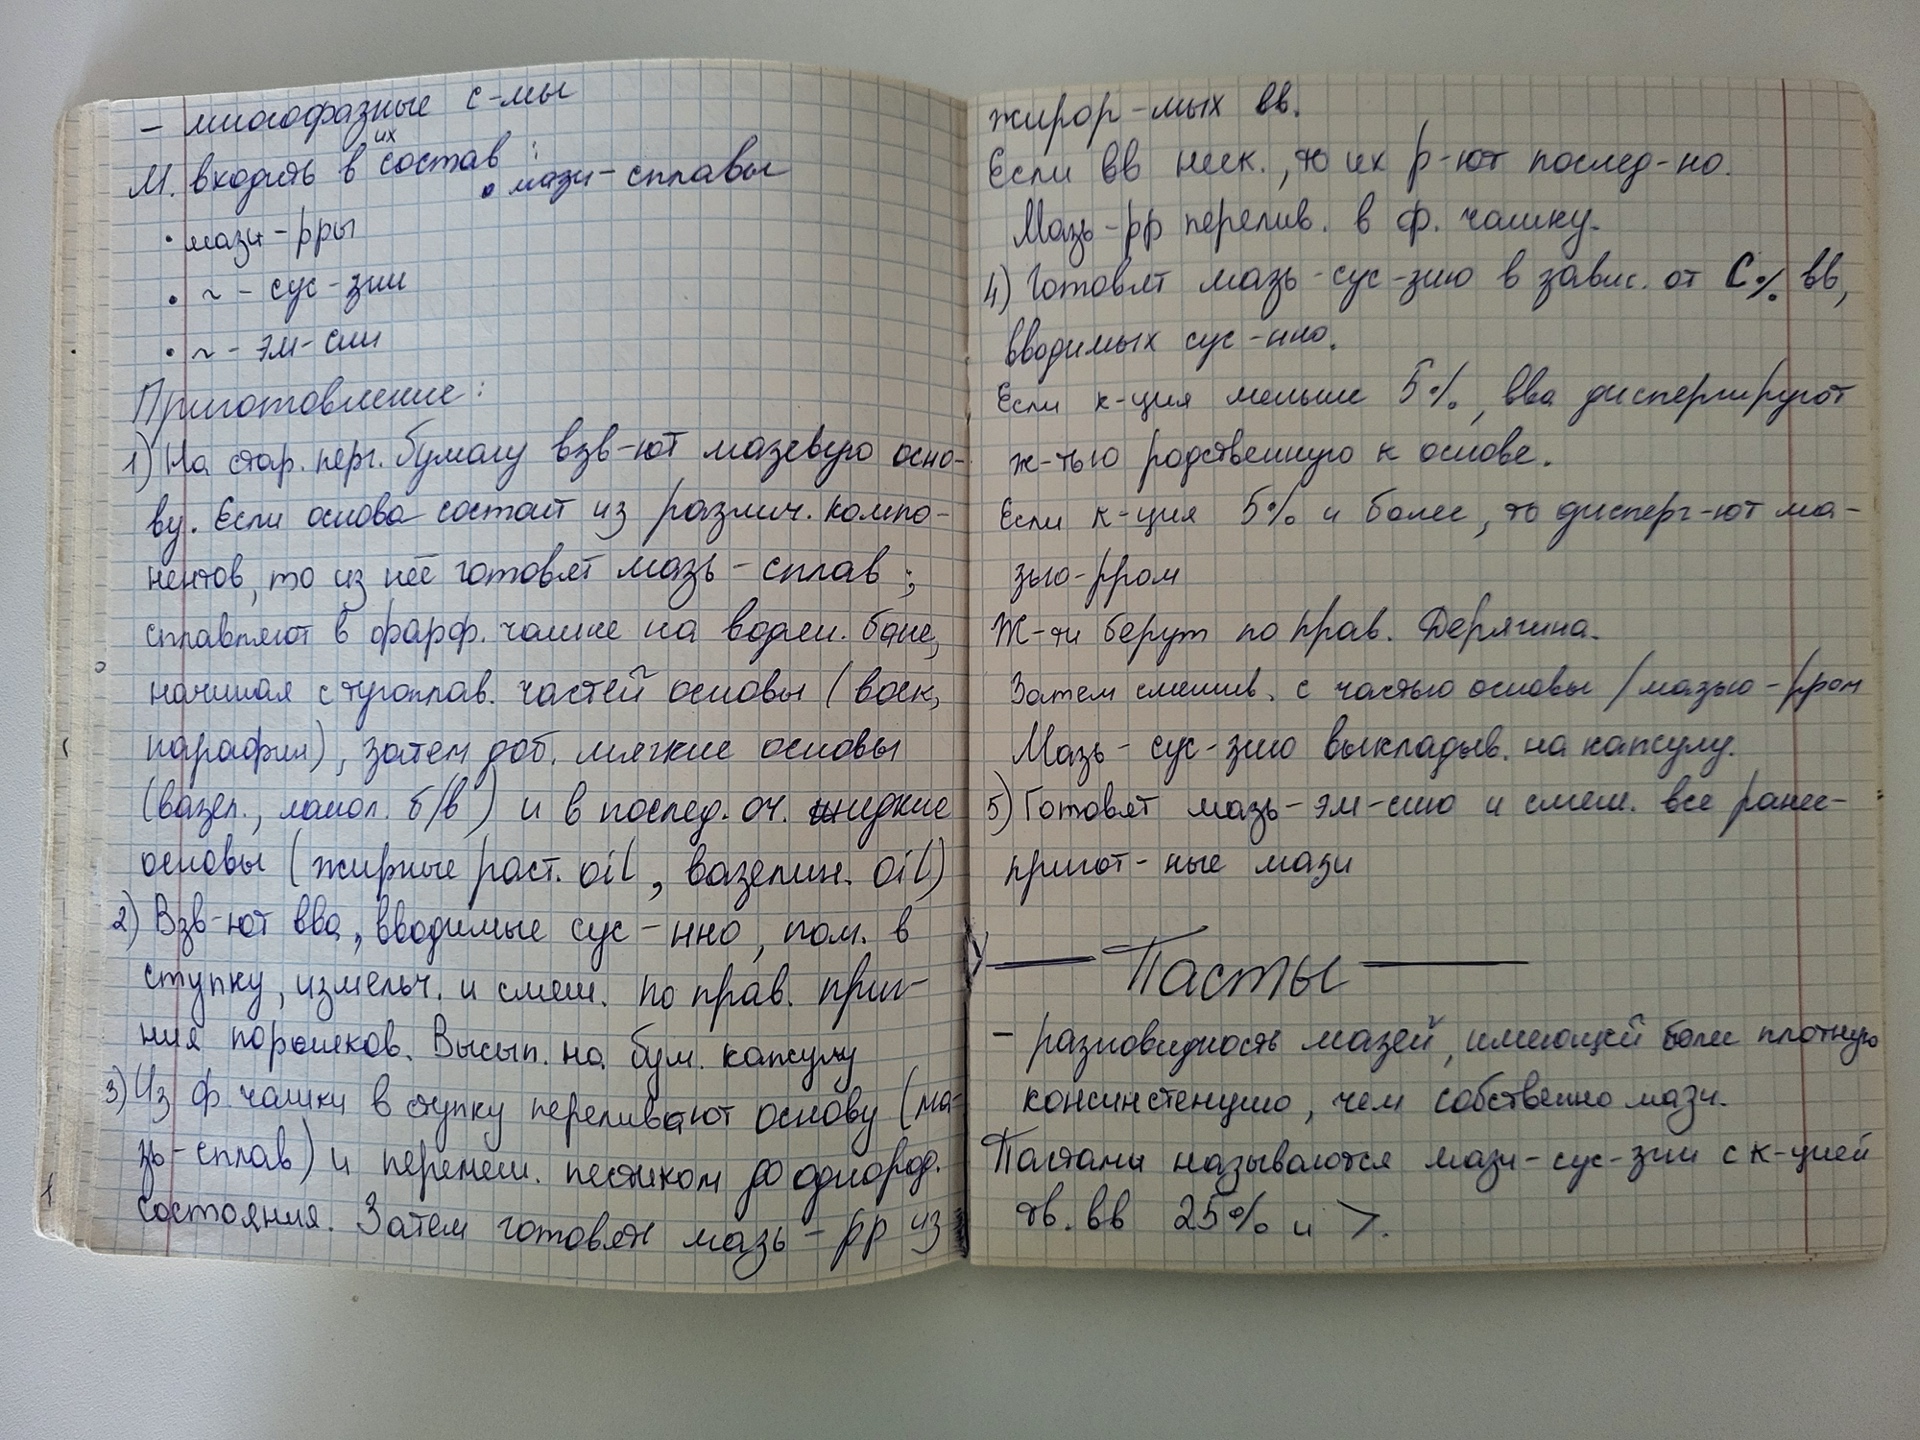 – многофазные с-мы
М. входить в их состав :
• мази-сплавы
• мази-рры
• ~ - сус-зии
• ~ - эм-сии
Приготовление:
1) На стар. перг. бумагу взв-ют мазевую осно-
ву. Если основа состоит из различ. компо-
нентов, то из неё готовят мазь-сплав;
сплавляют в фарф. чашке на водян. бане,
начиная с тугоплав. частей основы (воск,
парафин), затем доб. мягкие основы
(вазел., ланол. б/в) и в послед. оч. жидкие
основы (жирные раст. oil, вазелин. oil)
2) Взв-ют вва, вводимые сус-нно, пом. в
ступку, измельч. и смеш. по прав. приг-
ния порошков. Высып. на бум. капсулу
3) Из ф чашки в ступку переливают основу (ма-
зь-сплав) и перемеш. пестиком до однород.
состояния. Затем готовят мазь-рр из
жирор-мых вв.
Если вв неск., то их р-ют послед-но.
Мазь-рр перелив. в ф. чашку.
4) Готовят мазь-сус-зию в завис. от C% вв,
вводимых сус-нно.
Если к-ция меньше 5%, вва диспергируют
ж-тью родственную к основе.
Если к-ция 5% и более, то дисперг-ют ма-
зью-рром
Ж-ти берут по прав. Дерягина.
Затем смешив. с частью основы / мазью-рром
Мазь-сус-зию выкладыв. на капсулу.
5) Готовят мазь-эм-сию и смеш. все ранее-
пригот-ные мази
Пасты
– разновидность мазей, имеющей более плотную
консинстенцию, чем собственно мази.
Пастами называются мази-сус-зии с к-цией
тв. вв 25% и >.